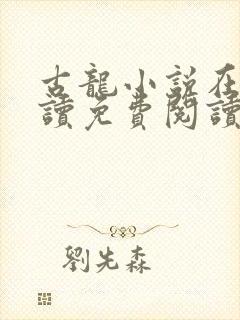 古龍小說在
讀免費閱讀
劉先森